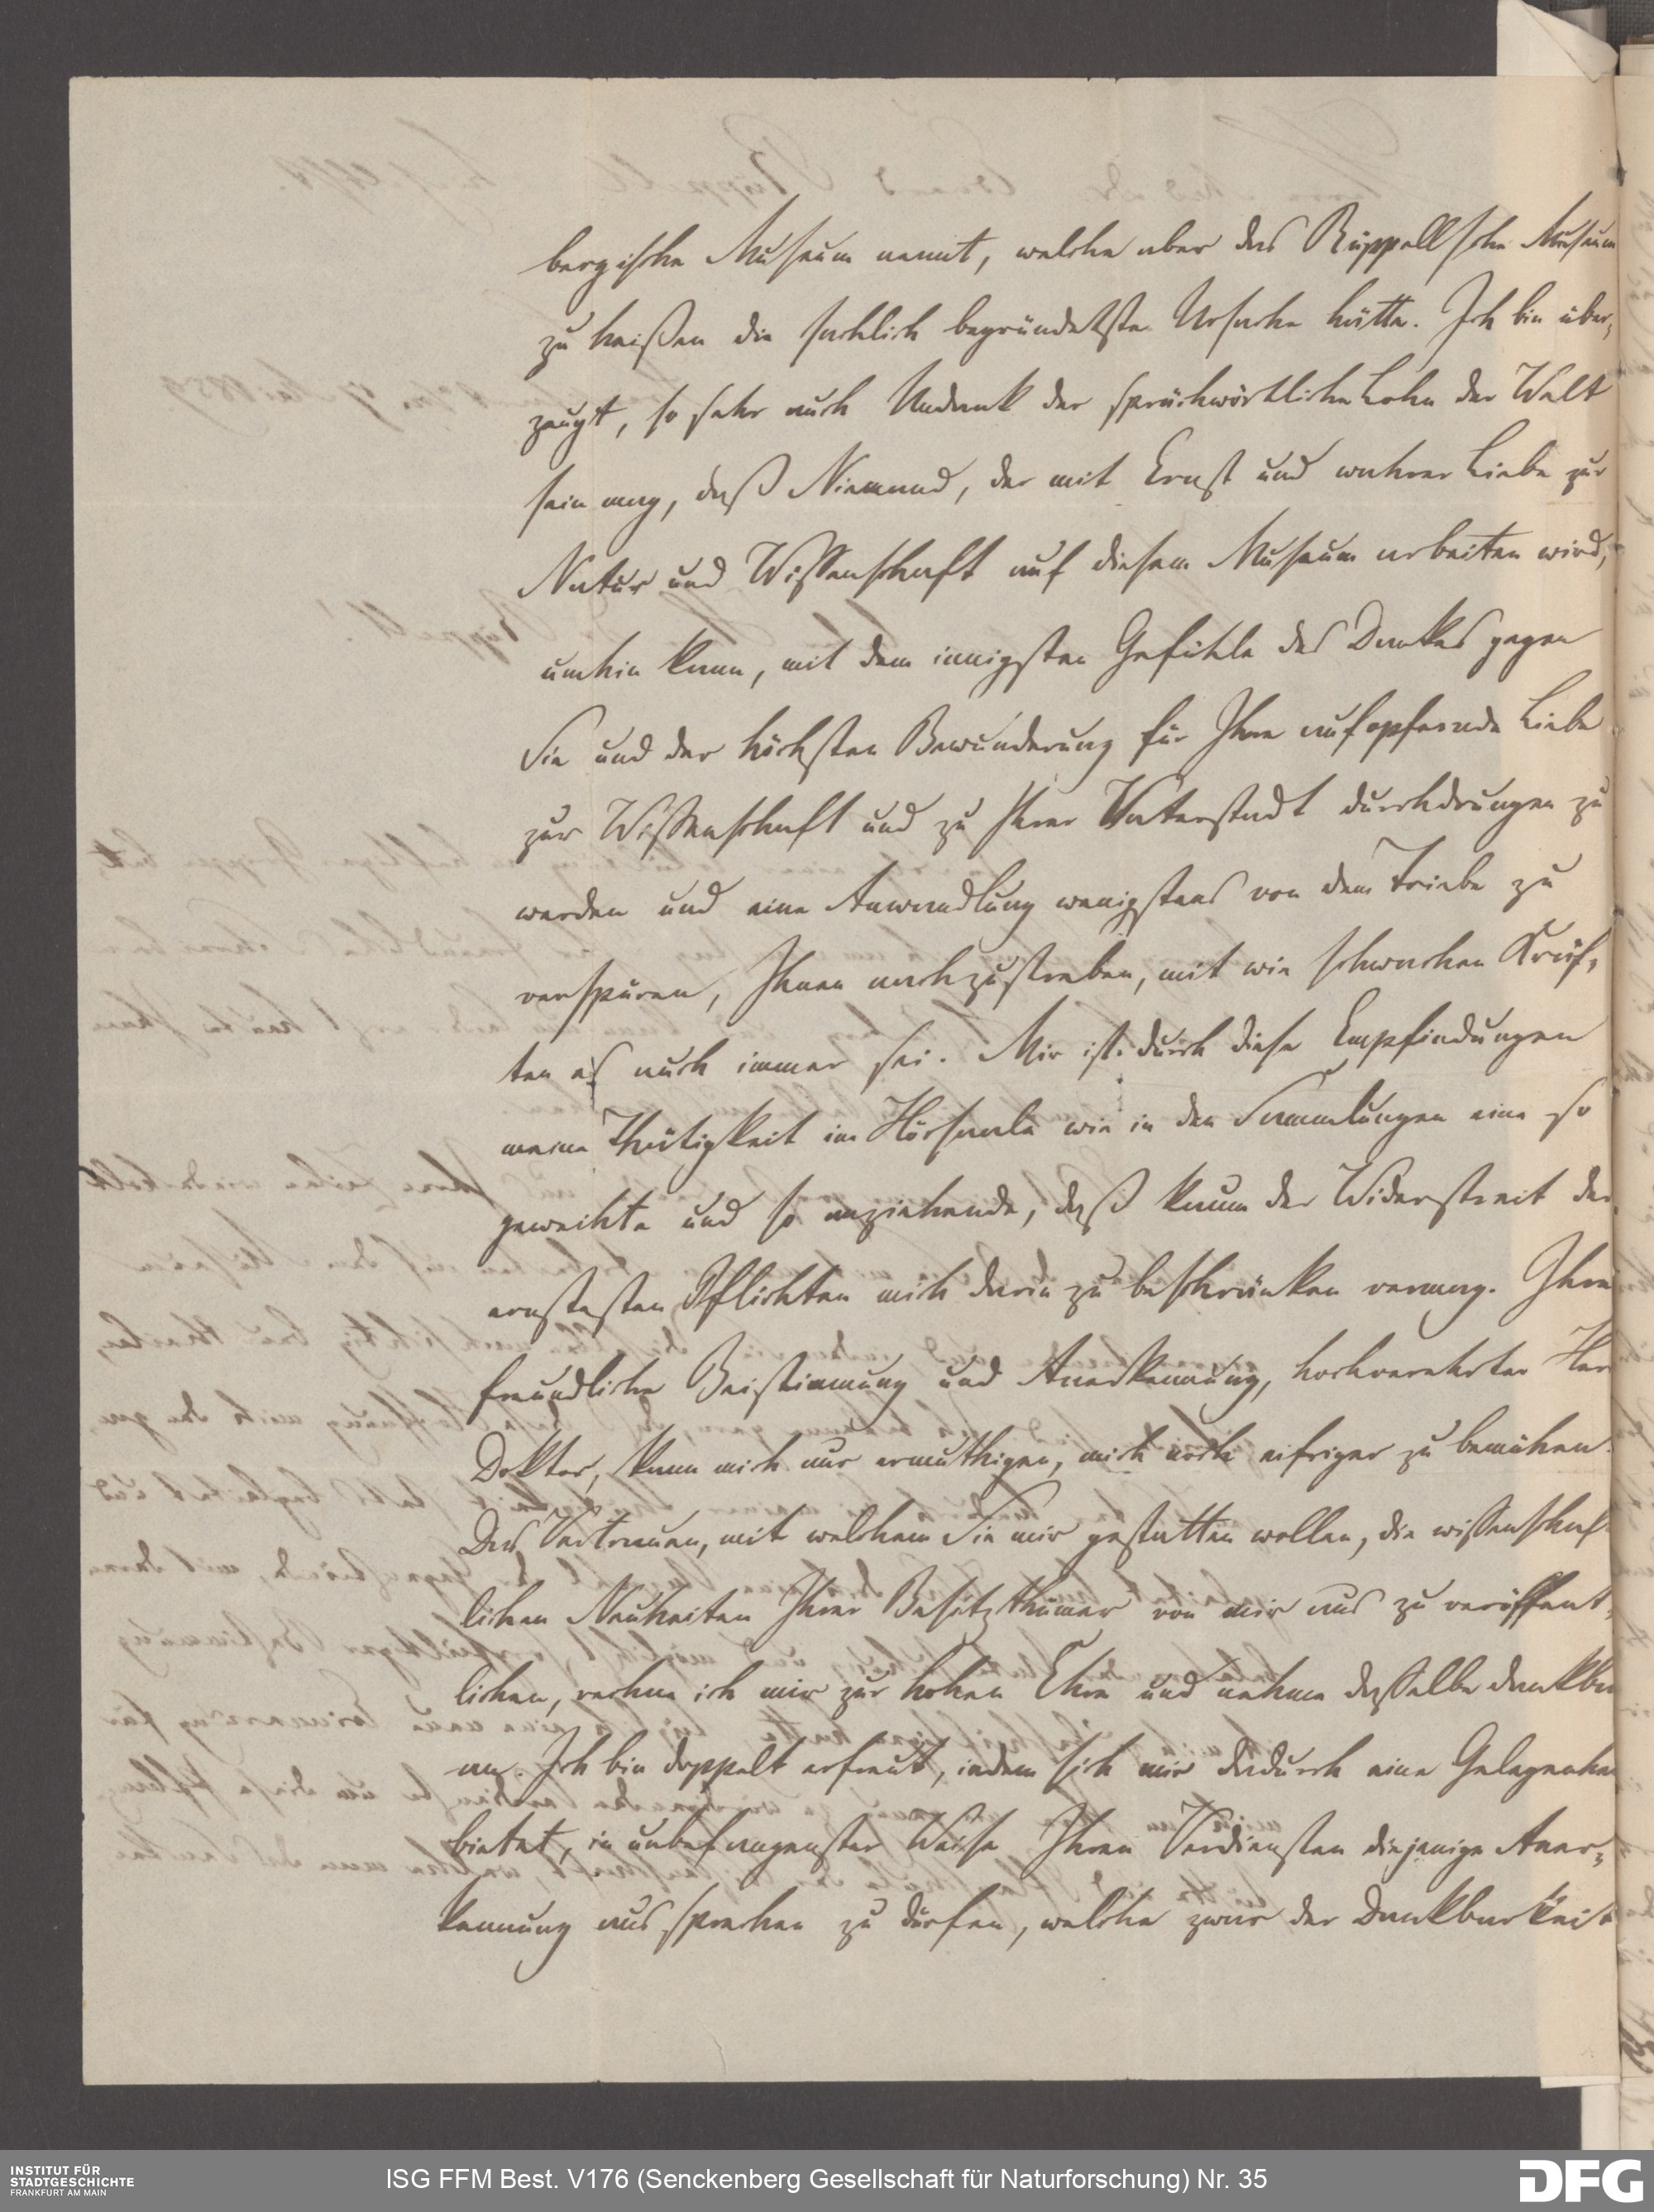 bergische Museum nennt, welche aber das Rüppellsche Museum
zu heißen die sachlich begründetste Ursache hätte. Ich bin über,
zeugt, so sehr auch Undank der sprüchwörtliche Lohn der Welt
sein mag, daß Niemand, der mit Ernst und wahrer Liebe zur
Natur und Wissenschaft auf diesem Museum arbeiten wird,
umhin kann, mit dem innigsten Gefühle des Dankes gegen
Sie und der höchsten Bewunderung für Ihre aufopfernde Liebe
zur Wissenschaft und zu Ihrer Vaterstadt durchdrungen zu
werden und eine Anwandlung wenigstens von dem Triebe zu
verspüren, Ihnen nachzustreben, mit wie schwachen Kräf,
ten es auch immer sei. Mir ist durch diese Empfindungen
meine Thätigkeit im Hörsaale wie in den Sammlungen eine so
geweihte und so anziehende, daß kaum der Widerstreit der
ernstesten Pflichten mich darin zu beschränken vermag. Ihre
freundliche Beistimmung und Anerkennung, hochverehrter Herr
Doktor, kann mich nur ermuthigen, mich noch eifriger zu bemühen.
Das Vertrauen, mit welchem Sie mir gestatten wollen, die wissenschaf
lichen Neuheiten Ihrer Besitzthümer von mir aus zu veröffent,
lichen, rechne ich mir zur hohen Ehre und nehme dasselbe dankbar
an. Ich bin doppelt erfreut, indem sich mir dadurch eine Gelegenhei
bietet, in unbefangenster Weise Ihren Verdiensten diejenige Aner,
kennung aussprechen zu dürfen, welche zwar der Dankbarkeit
INSTITUT FÜR
STADTGESCHICHTE
FRANKFURT AM MAIN
ISG FFM Best. V176 (Senckenberg Gesellschaft für Naturforschung) Nr. 35
DFG